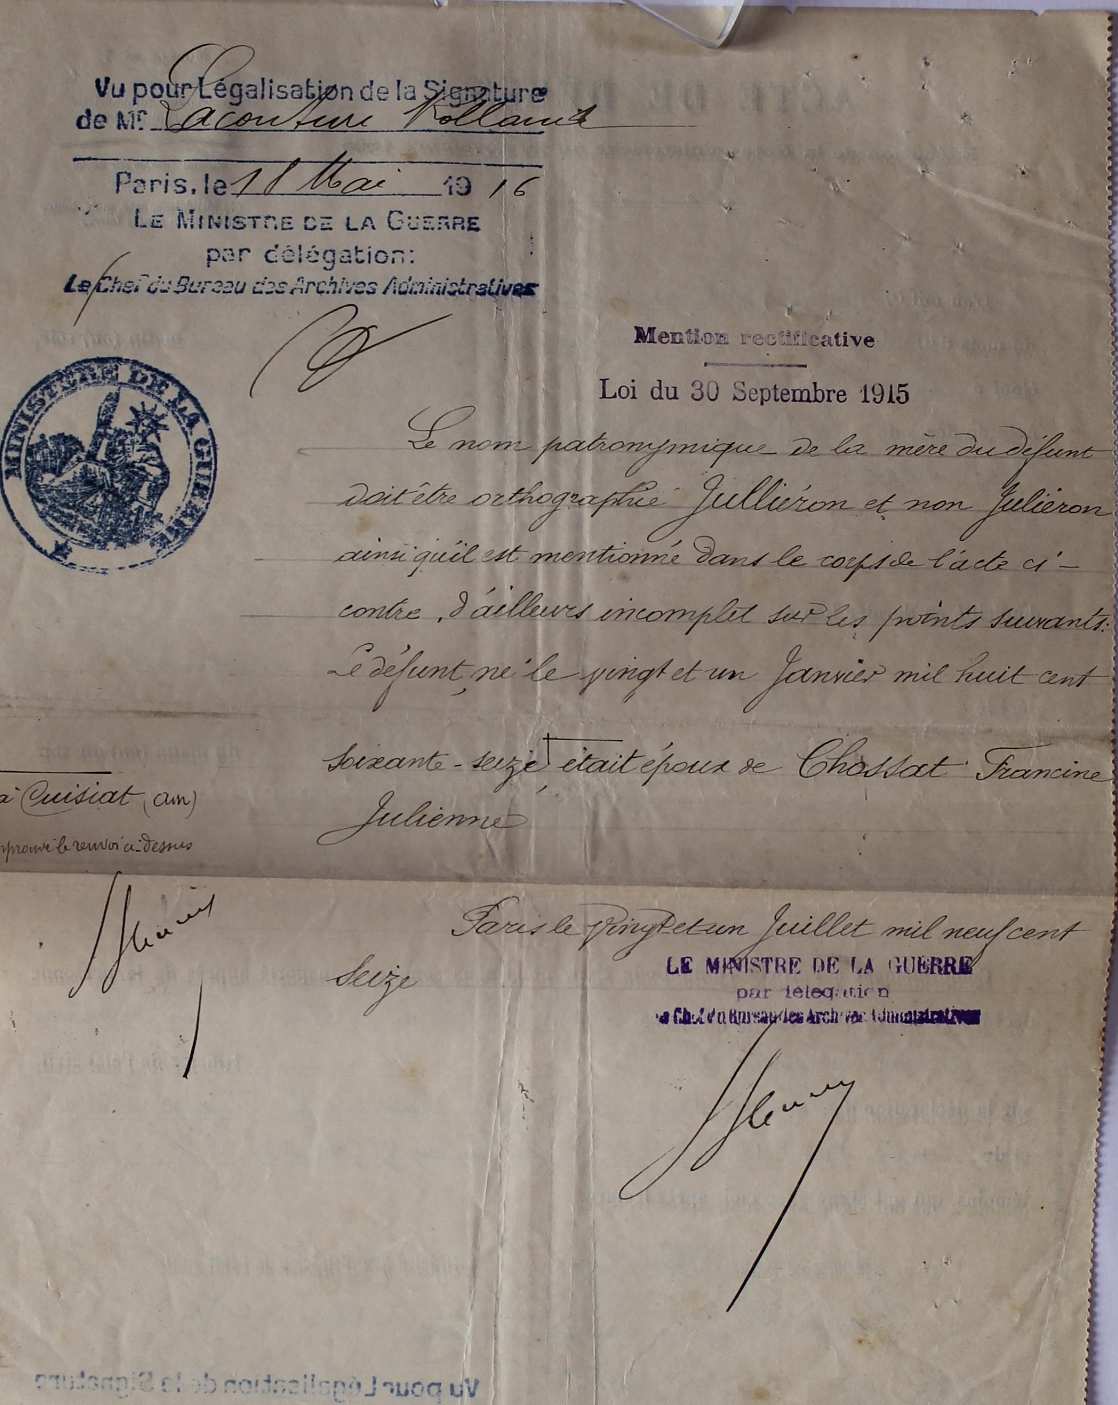 Vu pour Légalisation de la Signature
de Mr. Lacouture Rolland
Paris, le 18 Mai 1916
LE MINISTRE DE LA GUERRE
par délégation:
Le Chef du Bureau des Archives Administratives
MINISTERE DE LA GUERRE
Mention rectificative
Loi du 30 Septembre 1915
Le nom patronymique de la mère du défunt
doit être orthographié Julliéron et non Juliéron
ainsi qu'il est mentionné dans le corps de l'acte ci-
contre, d'ailleurs incomplet sur les points suivants:
Le défunt, né le vingt et un Janvier mil huit cent
soixante-seize, était époux de Chossat Francine
Julienne
à Cuisiat (Ain)
approuvé le renvoi ci-dessus
Paris le vingt et un Juillet mil neuf cent
seize
LE MINISTRE DE LA GUERRE
par délégation
Le Chef du Bureau des Archives Administratives
Vu pour Légalisation de la Signature